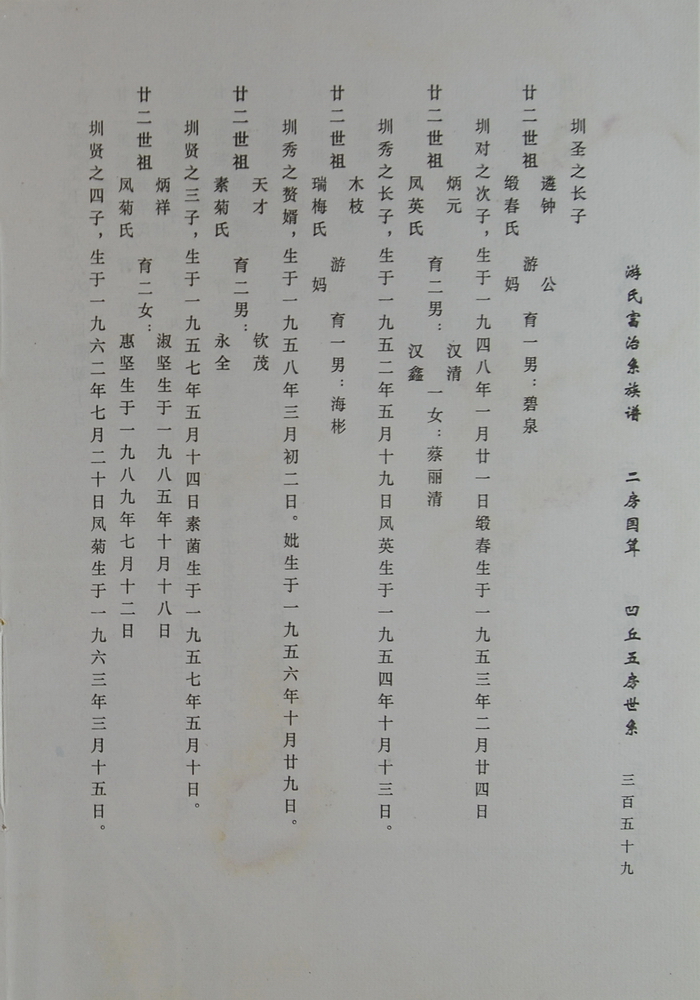 游氏富治系族谱 二房国算 凹丘五房世系 三百五十九
圳圣之长子
廿二世祖 遴钟 缎春氏 游 公 妈 育一男：碧泉
圳对之次子，生于一九四八年一月廿一日缎春生于一九五三年二月廿四日
廿二世祖 炳元 凤英氏 育二男： 汉清 汉鑫 一女：蔡丽清
圳秀之长子，生于一九五二年五月十九日凤英生于一九五四年十月十三日。
廿二世祖 木枝 瑞梅氏 游 妈 育一男：海彬
圳秀之赘婿，生于一九五八年三月初二日。妣生于一九五六年十月廿九日。
廿二世祖 天才 素菊氏 育二男： 钦茂 永全
圳贤之三子，生于一九五七年五月十四日素菌生于一九五七年五月十日。
廿二世祖 炳祥 凤菊氏 育二女： 淑坚生于一九八五年十月十八日 惠坚生于一九八九年七月十二日
圳贤之四子，生于一九六二年七月二十日凤菊生于一九六三年三月十五日。